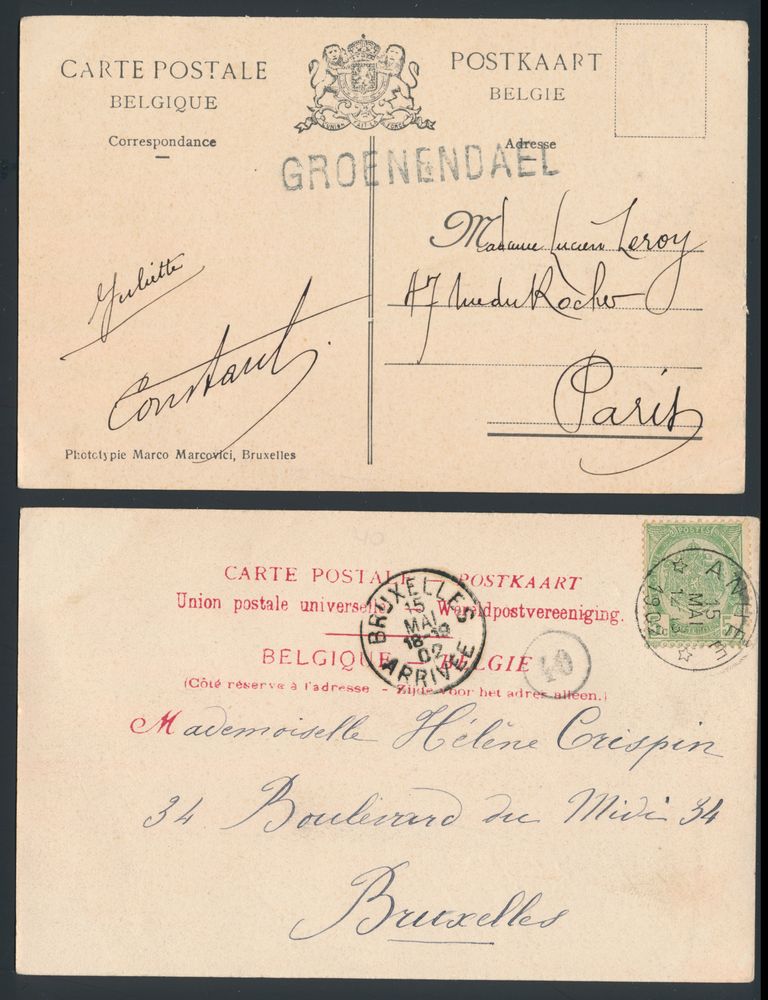 CARTE POSTALE
BELGIQUE
Correspondance
POSTKAART
BELGIE
Adresse
L'UNION FAIT LA FORCE
GROENENDAEL
Madame Lucien Leroy
47 rue du Rocher
Paris
Juliette
Constant
Phototypie Marco Marcovici, Bruxelles
CARTE POSTALE — POSTKAART
Union postale universelle — Wereldpostvereeniging.
BELGIQUE — BELGIE
(Côté réservé à l'adresse - Zijde voor het adres alleen.)
BRUXELLES
15
MAI
18-19
02
ARRIVÉE
40
POSTES
5
15
MAI
1902
Mademoiselle Hélène Crispin
34 Boulevard du Midi 34
Bruxelles